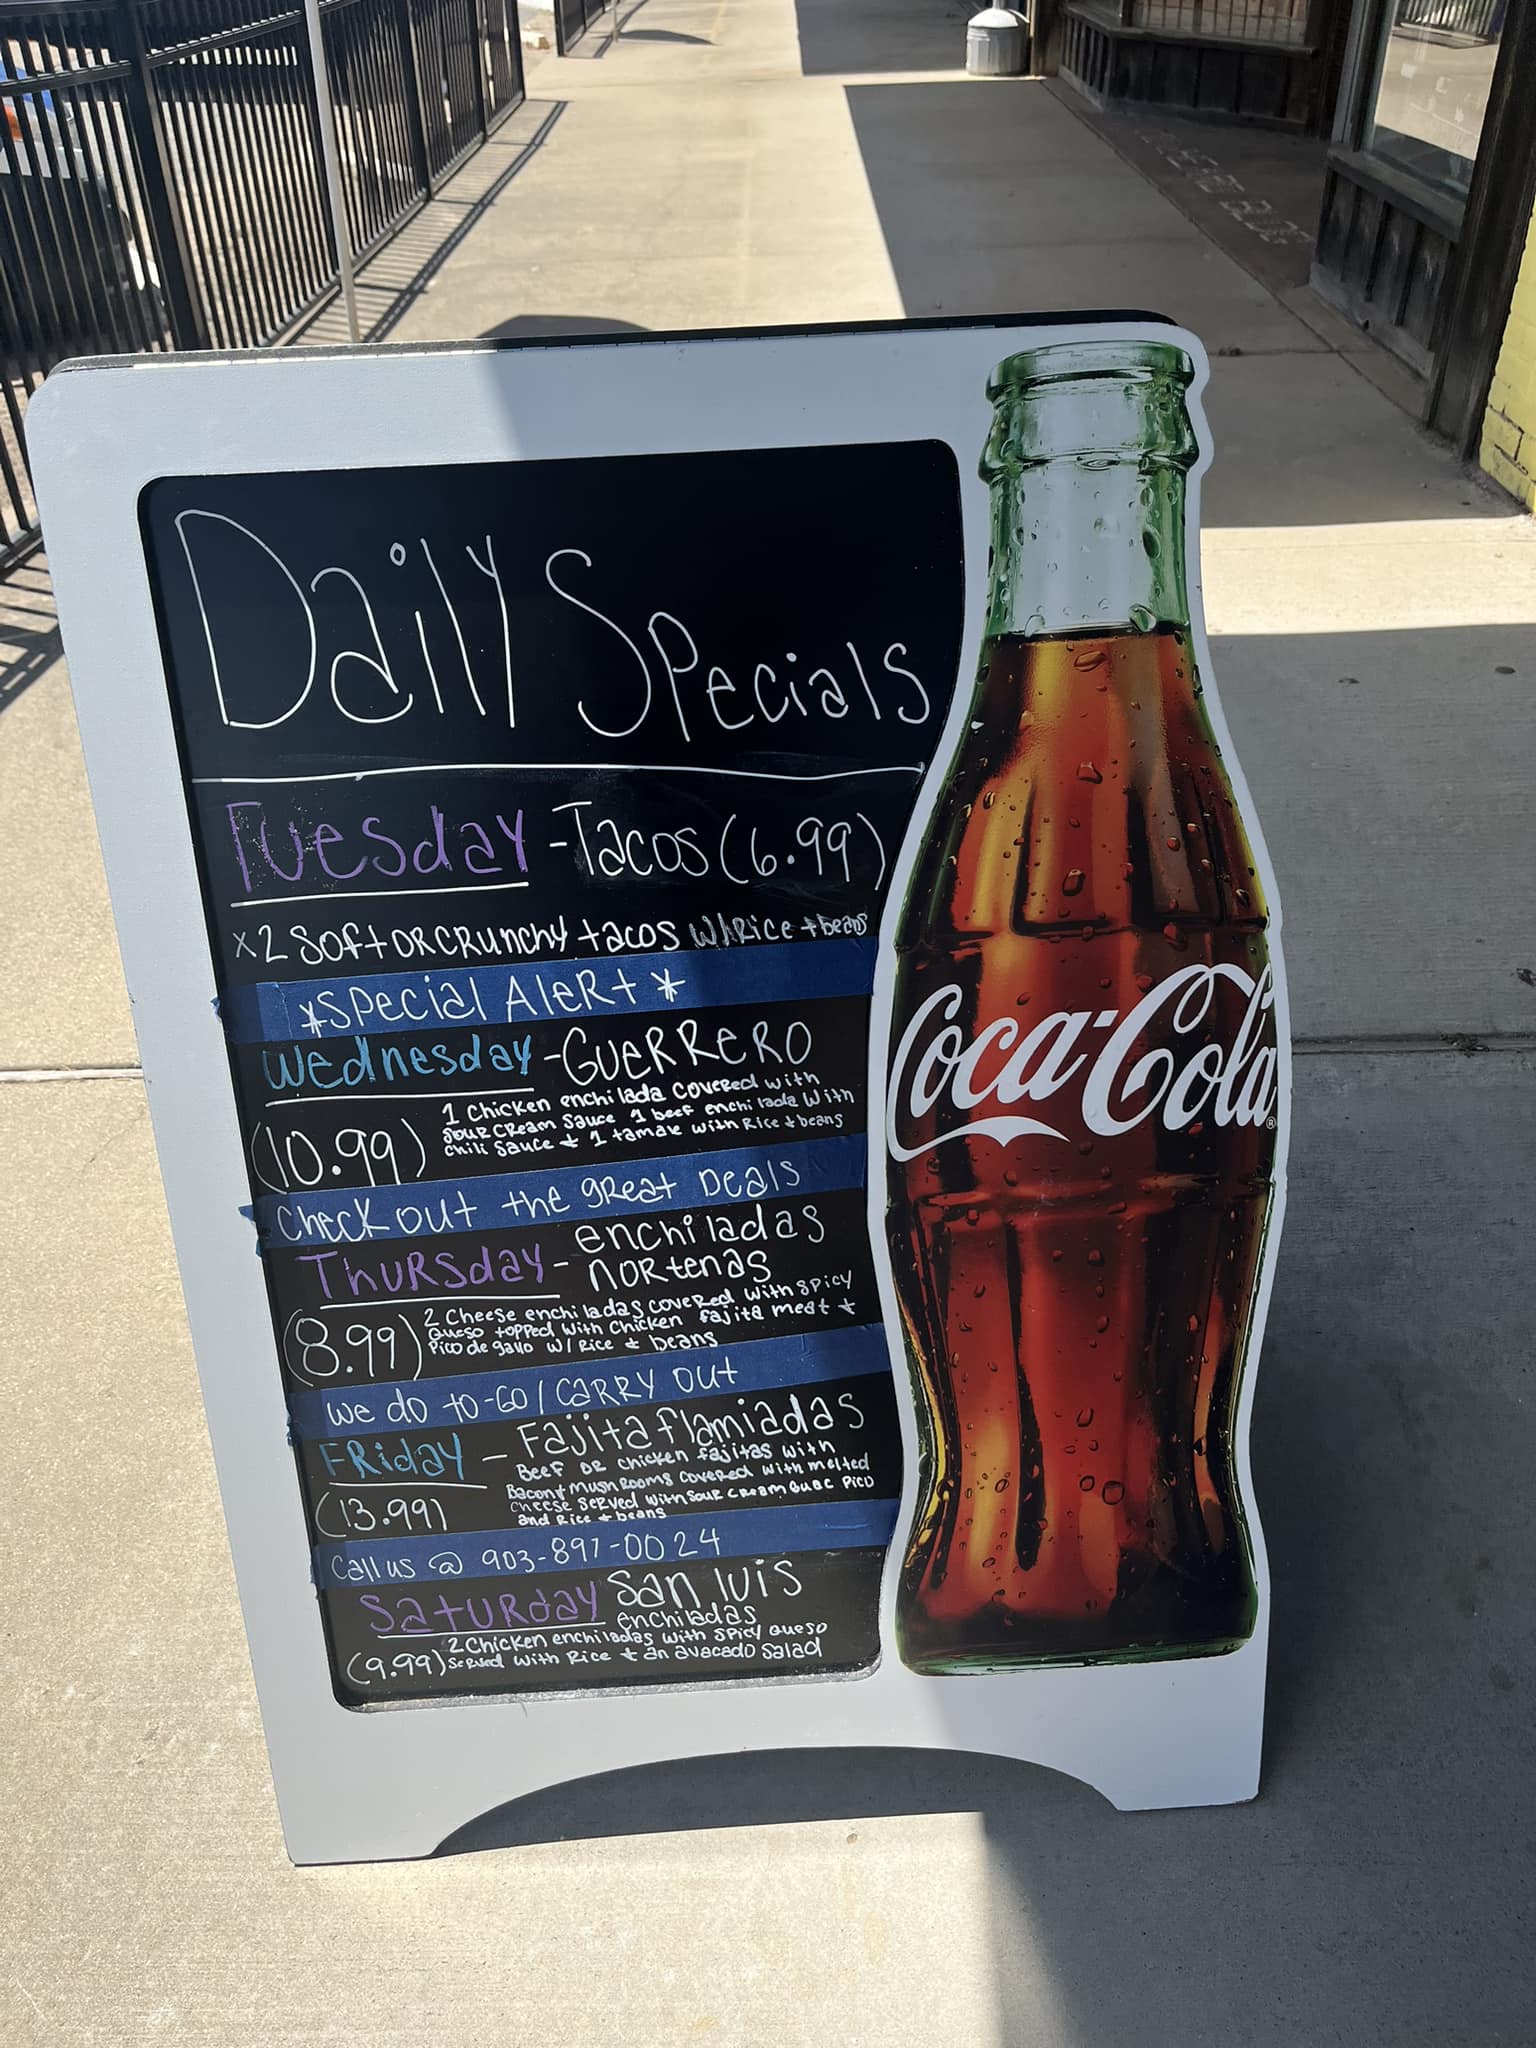 Daily Specials
Tuesday - Tacos (6.99)
x2 soft or crunchy tacos w/Rice + beans
*Special Alert*
Wednesday - Guerrero
(10.99)
1 chicken enchilada covered with
sour cream sauce 1 beef enchilada with
chili sauce + 1 tamale with Rice + beans
Check out the great Deals
Thursday - enchiladas
nortenas
(8.99)
2 Cheese enchiladas covered with spicy
Queso topped with chicken fajita meat +
Pico de gallo w/ Rice + beans
We do to-Go/Carry out
Friday - Fajita flamiadas
(13.99)
Beef or chicken fajitas with
Bacon + mushrooms covered with melted
cheese served with sour cream Guac Pico
and Rice + beans
Call us @ 903-891-0024
Saturday San luis
enchiladas
(9.99)
2 Chicken enchiladas with spicy Queso
served with Rice + an avacado salad
Coca-Cola®